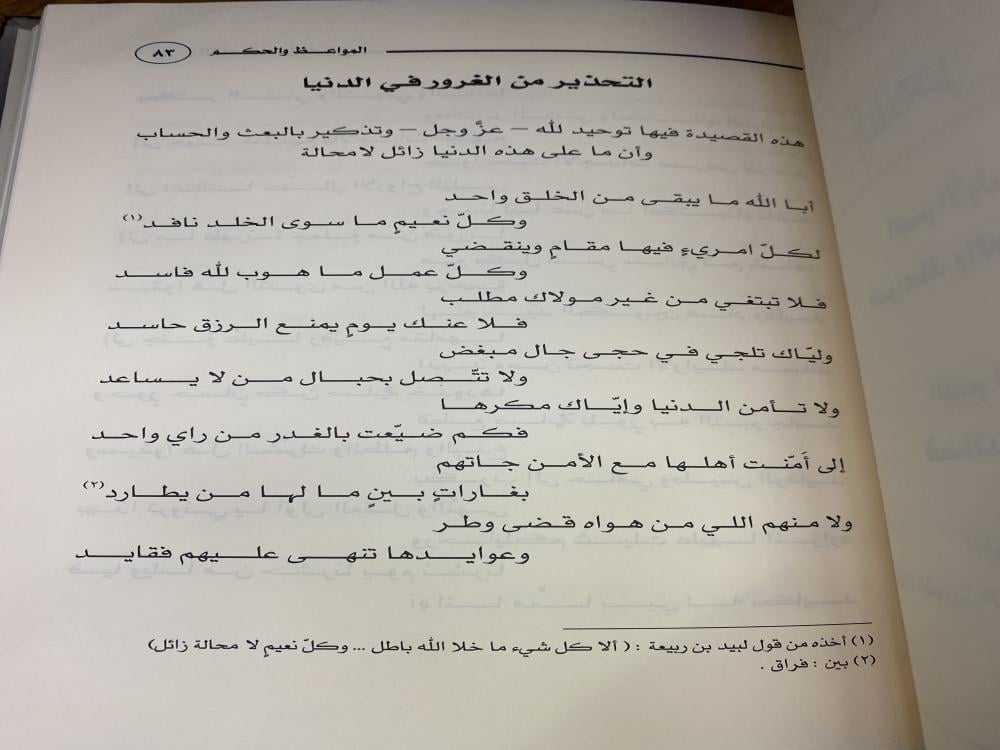 المواعظ والحكم ٨٣
التحذير من الغرور في الدنيا
هذه القصيدة فيها توحيد لله - عزَّ وجل - وتذكير بالبعث والحساب
وأن ما على هذه الدنيا زائل لامحالة
أبا الله ما يبقى من الخلق واحد
وكلّ نعيمٍ ما سوى الخلد نافد(١)
لكلّ امريءٍ فيها مقامٍ وينقضي
وكلّ عمل ما هوب لله فاسد
فلا تبتغي من غير مولاك مطلب
فلا عنك يومٍ يمنع الرزق حاسد
وليّاك تلجي في حجى جال مبغض
ولا تتّصل بحبال من لا يساعد
ولا تأمن الدنيا وإيّاك مكرها
فكم ضيّعت بالغدر من راي واحد
إلى أَمّنت أهلها مع الأمن جاتهم
بغاراتٍ بينٍ ما لها من يطارد(٢)
ولا منهم اللي من هواه قضى وطر
وعوايدها تنهى عليهم فقايد
(١) أخذه من قول لبيد بن ربيعة : ( ألا كل شيء ما خلا الله باطل ... وكلّ نعيمٍ لا محالة زائل)
(٢) بين : فراق .